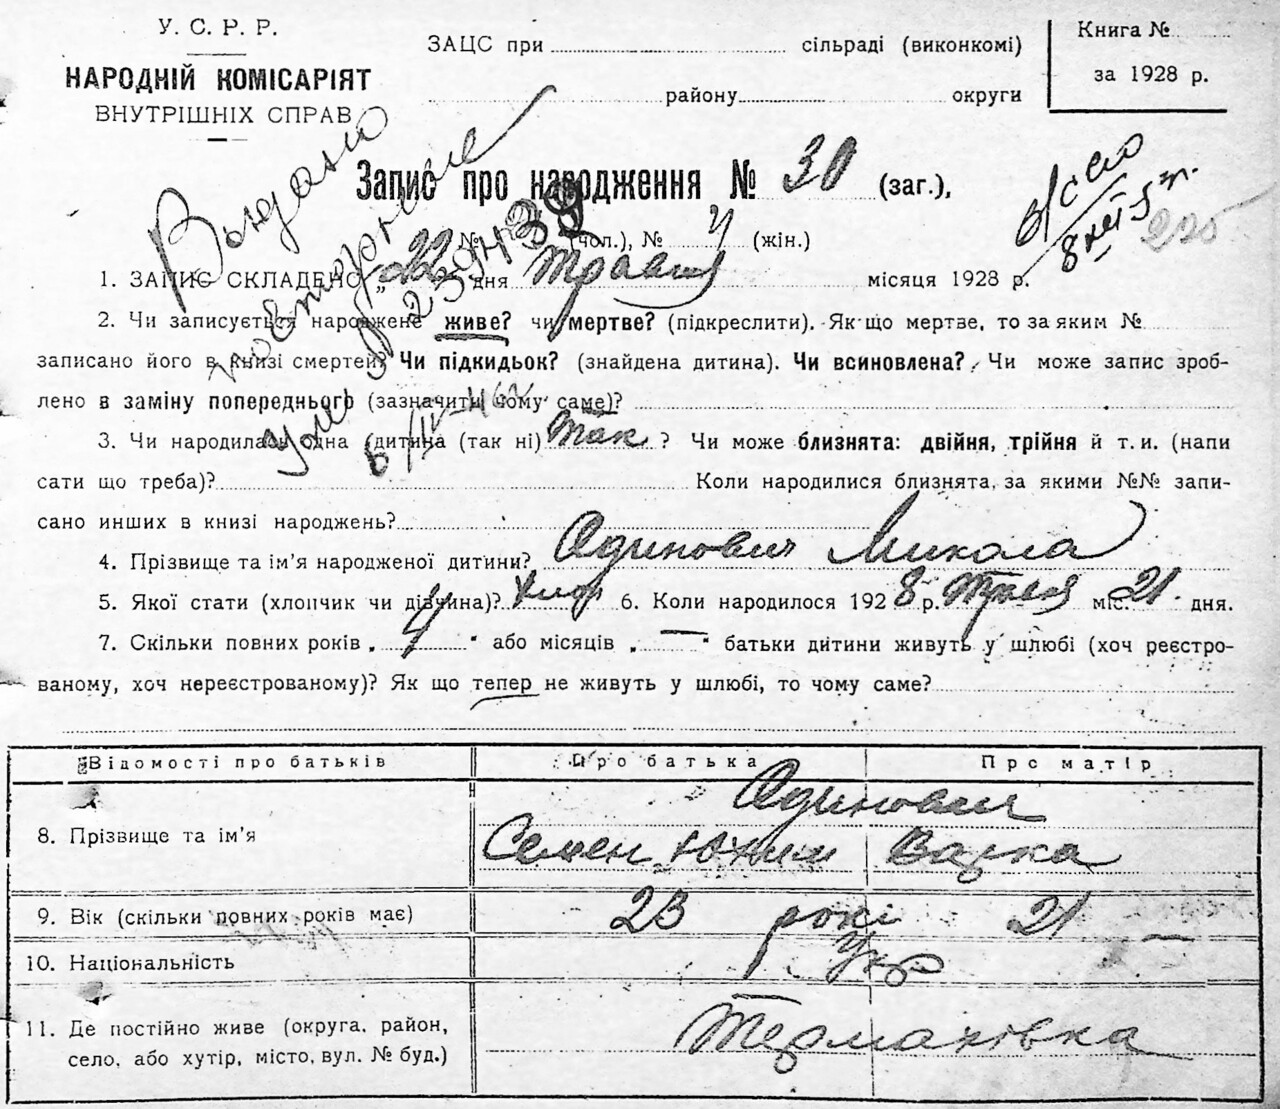 У. С. Р. Р.
НАРОДНІЙ КОМІСАРІЯТ
ВНУТРІШНІХ СПРАВ
ЗАЦС при сільраді (виконкомі)
району округи
Книга №
за 1928 р.
Запис про народження № 30 (заг.),
№ (чол.), № (жін.)
Видано
повторне
1. ЗАПИС СКЛАДЕНО „22" дня Травня місяця 1928 р.
2. Чи записується народжене живе? чи мертве? (підкреслити). Як що мертве, то за яким №
записано його в книзі смертей? Чи підкидьок? (знайдена дитина). Чи всиновлена? Чи може запис зроб-
лено в заміну попереднього (зазначити чому саме)?
3. Чи народилась одна дитина (так ні) Так ? Чи може близнята: двійня, трійня й т. и. (напи
сати що треба)? Коли народилися близнята, за якими №№ запи-
сано инших в книзі народжень?
4. Прізвище та ім'я народженої дитини? Одинович Микола
5. Якої стати (хлопчик чи дівчина)? Хлоп 6. Коли народилося 1928 р. Травня міс. 21 дня.
7. Скільки повних років „4" або місяців „—" батьки дитини живуть у шлюбі (хоч реєстро-
ваному, хоч нереєстрованому)? Як що тепер не живуть у шлюбі, то чому саме?
Відомості про батьків Про батька Про матір
Одинович
8. Прізвище та ім'я Семен Юхим Варка
9. Вік (скільки повних років має) 23 рокі 21
10. Національність Укр
11. Де постійно живе (округа, район, Термахівка
село, або хутір, місто, вул. № буд.)